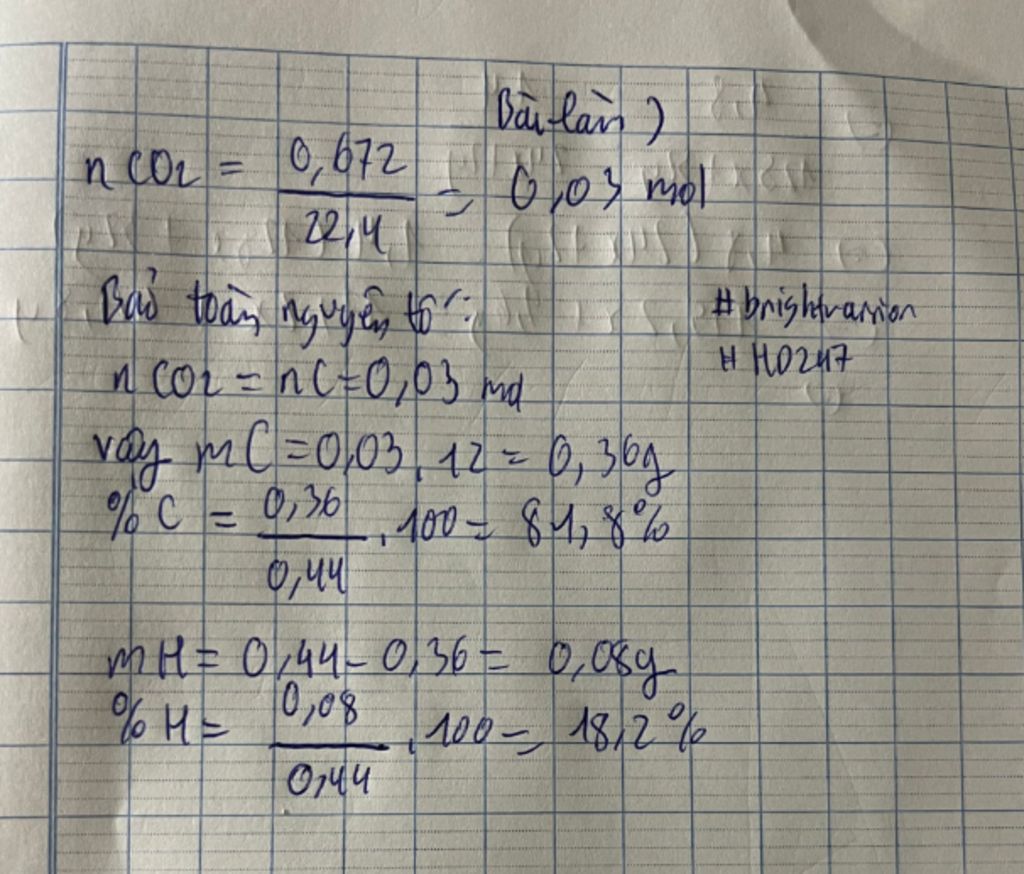 Bài làm
n CO2 = 0,672 / 22,4 = 0,03 mol
Bảo toàn nguyên tố:
#
n CO2 = nC = 0,03 mol
# H0247
vậy mC = 0,03 . 12 = 0,36g
% C = 0,36 / 0,44 . 100 = 81,8%
mH = 0,44 - 0,36 = 0,08g
% H = 0,08 / 0,44 . 100 = 18,2%